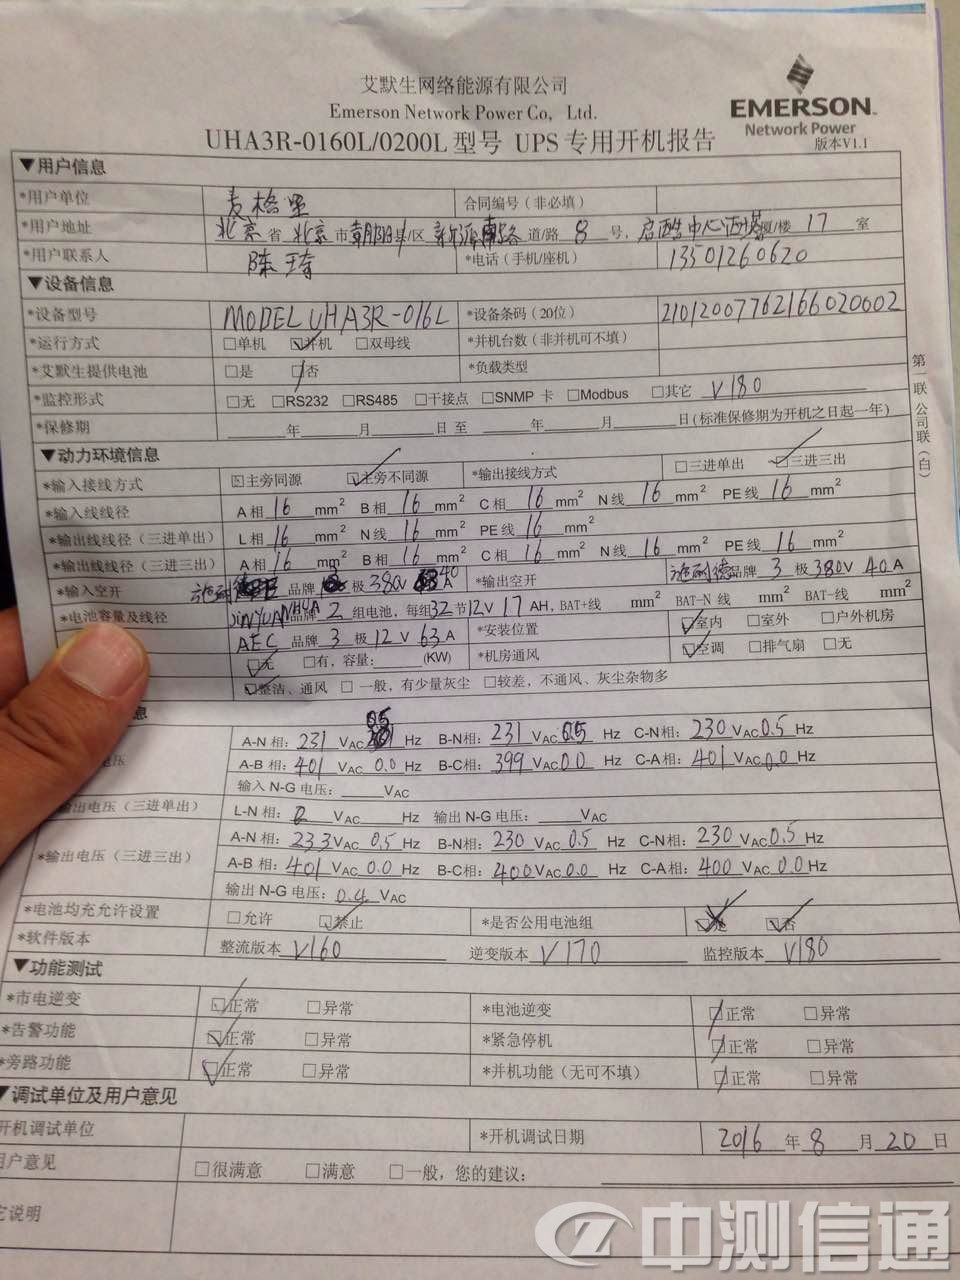 艾默生网络能源有限公司
Emerson Network Power Co, Ltd.
EMERSON
Network Power
UHA3R-0160L/0200L 型号 UPS 专用开机报告
版本V1.1
▼用户信息
*用户单位 麦格里 合同编号（非必填）
*用户地址 北京 省 北京 市 朝阳 县/区 新源南路 道/路 8 号, 启皓中心西塔 厦/楼 17 室
*用户联系人 陈琦 *电话（手机/座机） 13501260620
▼设备信息
*设备型号 MODEL UHA3R-016L *设备条码（20位） 21012007762166020002
*运行方式 □单机 ☑并机 □双母线 *并机台数（非并机可不填）
*艾默生提供电池 □是 ☑否 *负载类型
*监控形式 □无 □RS232 □RS485 □干接点 □SNMP 卡 □Modbus □其它 V180
*保修期 年 月 日 至 年 月 日（标准保修期为开机之日起一年）
第一联 公司联（白）
▼动力环境信息
*输入接线方式 □主旁同源 ☑主旁不同源 *输出接线方式 □三进单出 ☑三进三出
*输入线线径 A 相 16 mm² B 相 16 mm² C 相 16 mm² N 线 16 mm² PE 线 16 mm²
*输出线线径（三进单出） L 相 16 mm² N 线 16 mm² PE 线 16 mm²
*输出线线径（三进三出） A 相 16 mm² B 相 16 mm² C 相 16 mm² N 线 16 mm² PE 线 16 mm²
*输入空开 施耐德 品牌 极 380V 40 A *输出空开 施耐德 品牌 3 极 380V 40 A
*电池容量及线径 JINYUANHUA 品牌 2 组电池，每组 32 节 12 V 17 AH, BAT+线 mm² BAT-N 线 mm² BAT-线 mm²
AEC 品牌 3 极 12 V 63 A *安装位置 ☑室内 □室外 □户外机房
☑无 □有, 容量: (KW) *机房通风 ☑空调 □排气扇 □无
☑整洁、通风 □一般，有少量灰尘 □较差，不通风、灰尘杂物多
息
A-N 相: 231 VAC 0.5 Hz B-N相: 231 VAC 0.5 Hz C-N相: 230 VAC 0.5 Hz
电压 A-B 相: 401 VAC 0.0 Hz B-C相: 399 VAC 0.0 Hz C-A相: 401 VAC 0.0 Hz
输入 N-G 电压: VAC
输出电压（三进单出） L-N 相: VAC Hz 输出 N-G 电压: VAC
*输出电压（三进三出） A-N 相: 233 VAC 0.5 Hz B-N相: 230 VAC 0.5 Hz C-N相: 230 VAC 0.5 Hz
A-B 相: 401 VAC 0.0 Hz B-C相: 400 VAC 0.0 Hz C-A相: 400 VAC 0.0 Hz
输出 N-G 电压: 0.4 VAC
*电池均充允许设置 □允许 ☑禁止 *是否公用电池组 是 ☑否
*软件版本 整流版本 V160 逆变版本 V170 监控版本 V180
▼功能测试
*市电逆变 ☑正常 □异常 *电池逆变 ☑正常 □异常
*告警功能 ☑正常 □异常 *紧急停机 ☑正常 □异常
*旁路功能 ☑正常 □异常 *并机功能（无可不填） ☑正常 □异常
▼调试单位及用户意见
开机调试单位 *开机调试日期 2016 年 8 月 20 日
用户意见 □很满意 □满意 □一般，您的建议:
它说明
中测信通